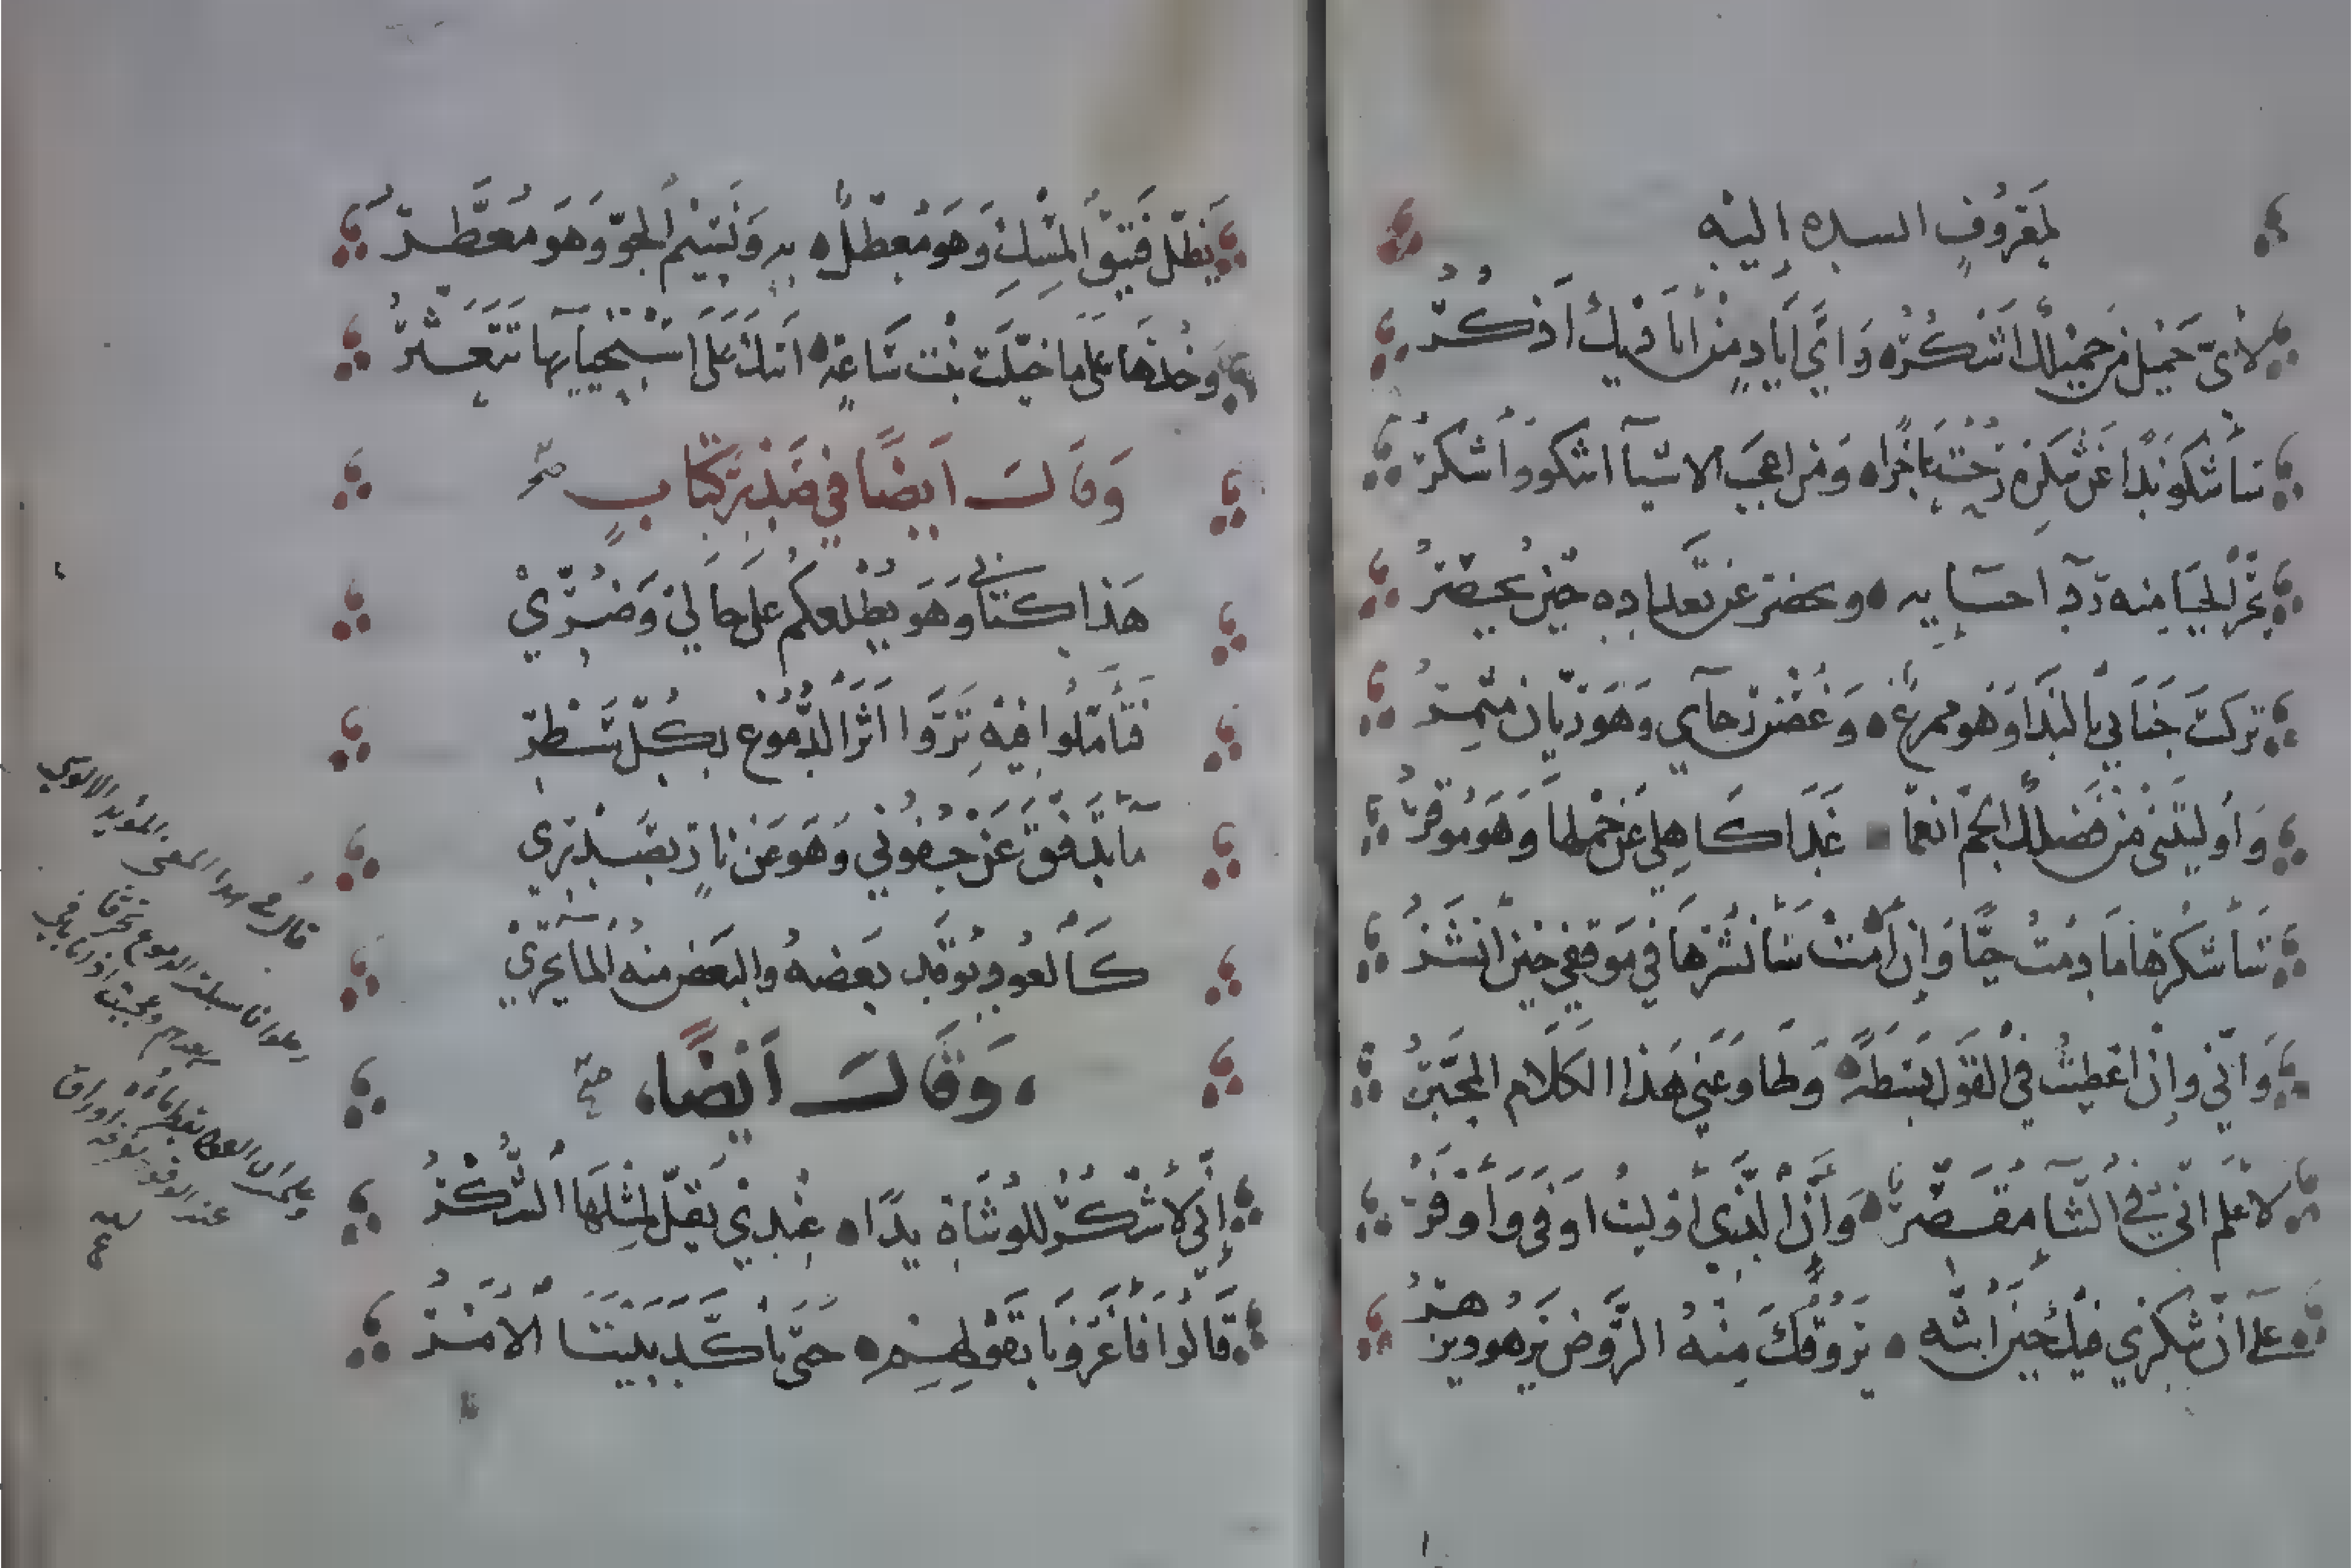 لمعروف السده إليه
لأيّ جميل من جميلك أشكره وأيّ أياد من أياديك أذكر
سأشكو ندا عن شكره رحت عاجزا ومن أعجب الاشيا اشكو وأشكر
يجرّ الحيا منه رِدآ احسانه ويحضر عن تعداده حين يحضر
تركت جنابي بالندا وهو ممرع وغصن رجآي وهو ريان مثمر
وأوليتني من فضلك الجم انعما غدا كاهلي عن حملها وهو موقر
سأشكرها ما دمت حيّا وإن أمت سأنشرها في موقفي حين انشر
وانّي وإن اعطيت في القول بسطة وطاوعني هذا الكلام المحبّر
لاعلم انّي في الثنآ مقصّر وأنّ الذي أوليت اوفى وأوفر
على انّ شكري فيك حين أبثّه يروقك منه الرّوض يزهو ويزهر
يظل فتيق المسك وهو معطّل به ونسيم الجوّ وهو معطّر
وخذها على ما خيّلت بنت ساعة اتتك على استحيايها تتعثّر
وقال أيضًا في صدر كتاب
هذا كتابي وهو يطلعكم على حالي وضرّي
فتأمّلوا فيه تروا أثر الدّموع بكلّ سطر
ما تدفق عن جفوني وهو من نار بصدري
كالعود يوقد بعضه والبعض منه الما يجري
وقال أيضًا
إنّي لاشكر للوشاة يدًا عندي يقلّ لمثلها الشّكر
قالوا فأغرونا بقولهم حتى تأكّد بيننا الأمر
قال في هذا المعنى المؤيد الالوسي